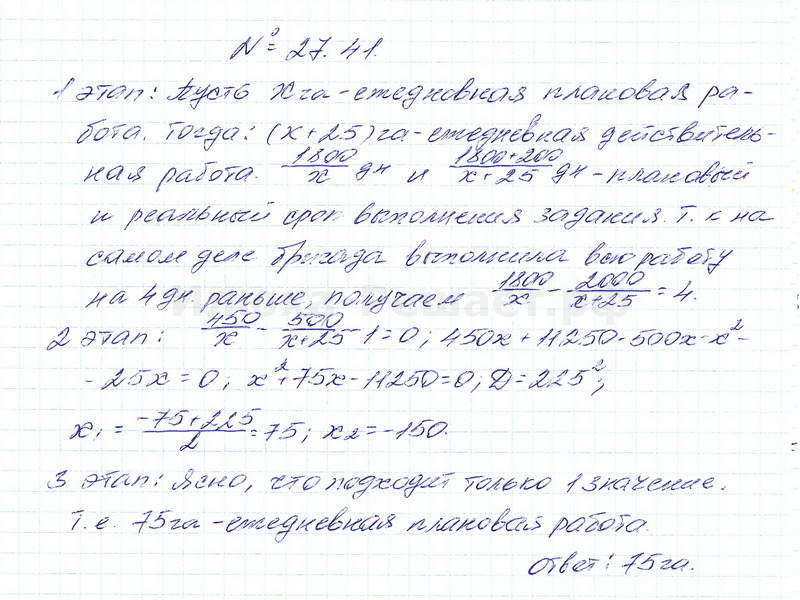 № 27.41.
1 этап: Пусть x га - ежедневная плановая ра-
бота. Тогда: (x+25) га - ежедневная действитель-
ная работа. 1800/x дн и (1800+200)/(x+25) дн - плановый
и реальный срок выполнения задания. Т.к на
самом деле бригада выполнила всю работу
на 4 дн. раньше, получаем 1800/x - 2000/(x+25) = 4.
2 этап: 450/x - 500/(x+25) - 1 = 0; 450x + 11250 - 500x - x² -
- 25x = 0; x² + 75x - 11250 = 0; D = 225²;
x₁ = (-75+225)/2 = 75; x₂ = -150.
3 этап: Ясно, что подходит только 1 значение.
Т.е. 75 га - ежедневная плановая работа.
Ответ: 75 га.